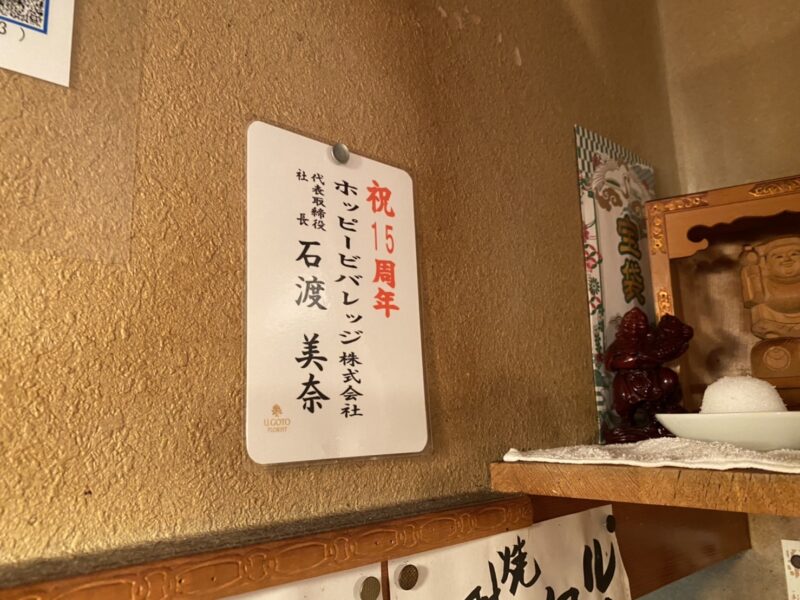 祝15周年
ホッピービバレッジ株式会社
代表取締役
社長
石渡 美奈
U.GOTO
FLORIST
宝袋
焼
3 )